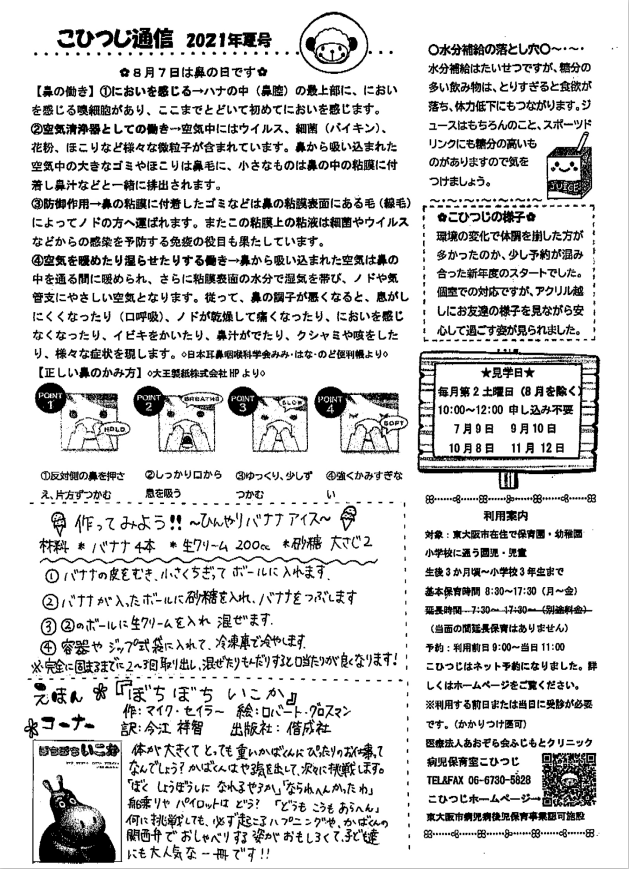 こひつじ通信 2021年夏号
✿8月7日は鼻の日です✿
【鼻の働き】①においを感じる→ハナの中（鼻腔）の最上部に、におい
を感じる嗅細胞があり、ここまでとどいて初めてにおいを感じます。
②空気清浄器としての働き→空気中にはウイルス、細菌（バイキン）、
花粉、ほこりなど様々な微粒子が含まれています。鼻から吸い込まれた
空気中の大きなゴミやほこりは鼻毛に、小さなものは鼻の中の粘膜に付
着し鼻汁などと一緒に排出されます。
③防御作用→鼻の粘膜に付着したゴミなどは鼻の粘膜表面にある毛（線毛）
によってノドの方へ運ばれます。またこの粘膜上の粘液は細菌やウイルス
などからの感染を予防する免疫の役目も果たしています。
④空気を暖めたり湿らせたりする働き→鼻から吸い込まれた空気は鼻の
中を通る間に暖められ、さらに粘膜表面の水分で湿気を帯び、ノドや気
管支にやさしい空気となります。従って、鼻の調子が悪くなると、息がし
にくくなったり（口呼吸）、ノドが乾燥して痛くなったり、においを感じ
なくなったり、イビキをかいたり、鼻汁がでたり、クシャミや咳をした
り、様々な症状を現します。◇日本耳鼻咽喉科学会みみ・はな・のど便利帳より◇
【正しい鼻のかみ方】◇大王製紙株式会社HPより◇
POINT 1
HOLD
POINT 2
BREATHE
POINT 3
SLOW
POINT 4
SOFT
①反対側の鼻を押さ
え、片方ずつかむ
②しっかり口から
息を吸う
③ゆっくり、少しず
つかむ
④強くかみすぎな
い
作ってみよう!!～ひんやりバナナアイス～
材料 *バナナ4本 *生クリーム 200cc *砂糖 大さじ2
①バナナの皮をむき、小さくちぎってボールに入れます。
②バナナが入ったボールに砂糖を入れ、バナナをつぶします
③②のボールに生クリームを入れ 混ぜます。
④容器や ジップ式袋に入れて、冷凍庫で冷やします。
※完全に固まるまでに2～3回取り出し、混ぜたりもんだりすると口当たりが良くなります!
えほん
コーナー
『ぼちぼち いこか』
作：マイク・セイラー 絵：ロバート・グロスマン
訳：今江 祥智 出版社：偕成社
ぼちぼちいこか
体が大きくてとっても重いかばくんにぴたりのお仕事って
なんでしょう？かばくんはや る気を出して、次々に挑戦します。
「ぼく しょうぼうしに なれるやろか」「なられへんかったわ」
船乗りや パイロットは どう？ 「どうも こうも あらへん」
何に挑戦しても、必ず起こるハプニングや、かばくんの
関西弁で おしゃべりする姿が おもしろくて、子ども達
にも大人気な 一冊です!!
〇水分補給の落とし穴〇～・～・
水分補給はたいせつですが、糖分の
多い飲み物は、とりすぎると食欲が
落ち、体力低下にもつながります。ジ
ュースはもちろんのこと、スポーツド
リンクにも糖分の高いも
のがありますので気を
つけましょう。
JUICE
✿こひつじの様子✿
環境の変化で体調を崩した方が
多かったのか、少し予約が混み
合った新年度のスタートでした。
個室での対応ですが、アクリル越
しにお友達の様子を見ながら安
心して過ごす姿が見られました。
★見学日★
毎月第2土曜日（8月を除く）
10:00～12:00 申し込み不要
7月9日 9月10日
10月8日 11月12日
利用案内
対象：東大阪市在住で保育園・幼稚園
小学校に通う園児・児童
生後3か月頃～小学校3年生まで
基本保育時間 8:30～17:30（月～金）
延長時間 7:30～ 17:30～（別途料金）
（当面の間延長保育はありません）
予約：利用前日9:00～当日11:00
こひつじはネット予約になりました。詳
しくはホームページをご覧ください。
※利用する前日または当日に受診が必要
です。（かかりつけ医可）
医療法人あおぞら会ふじもとクリニック
病児保育室こひつじ
TEL&FAX 06-6730-5828
こひつじホームページ→
東大阪市病児病後児保育事業認可施設